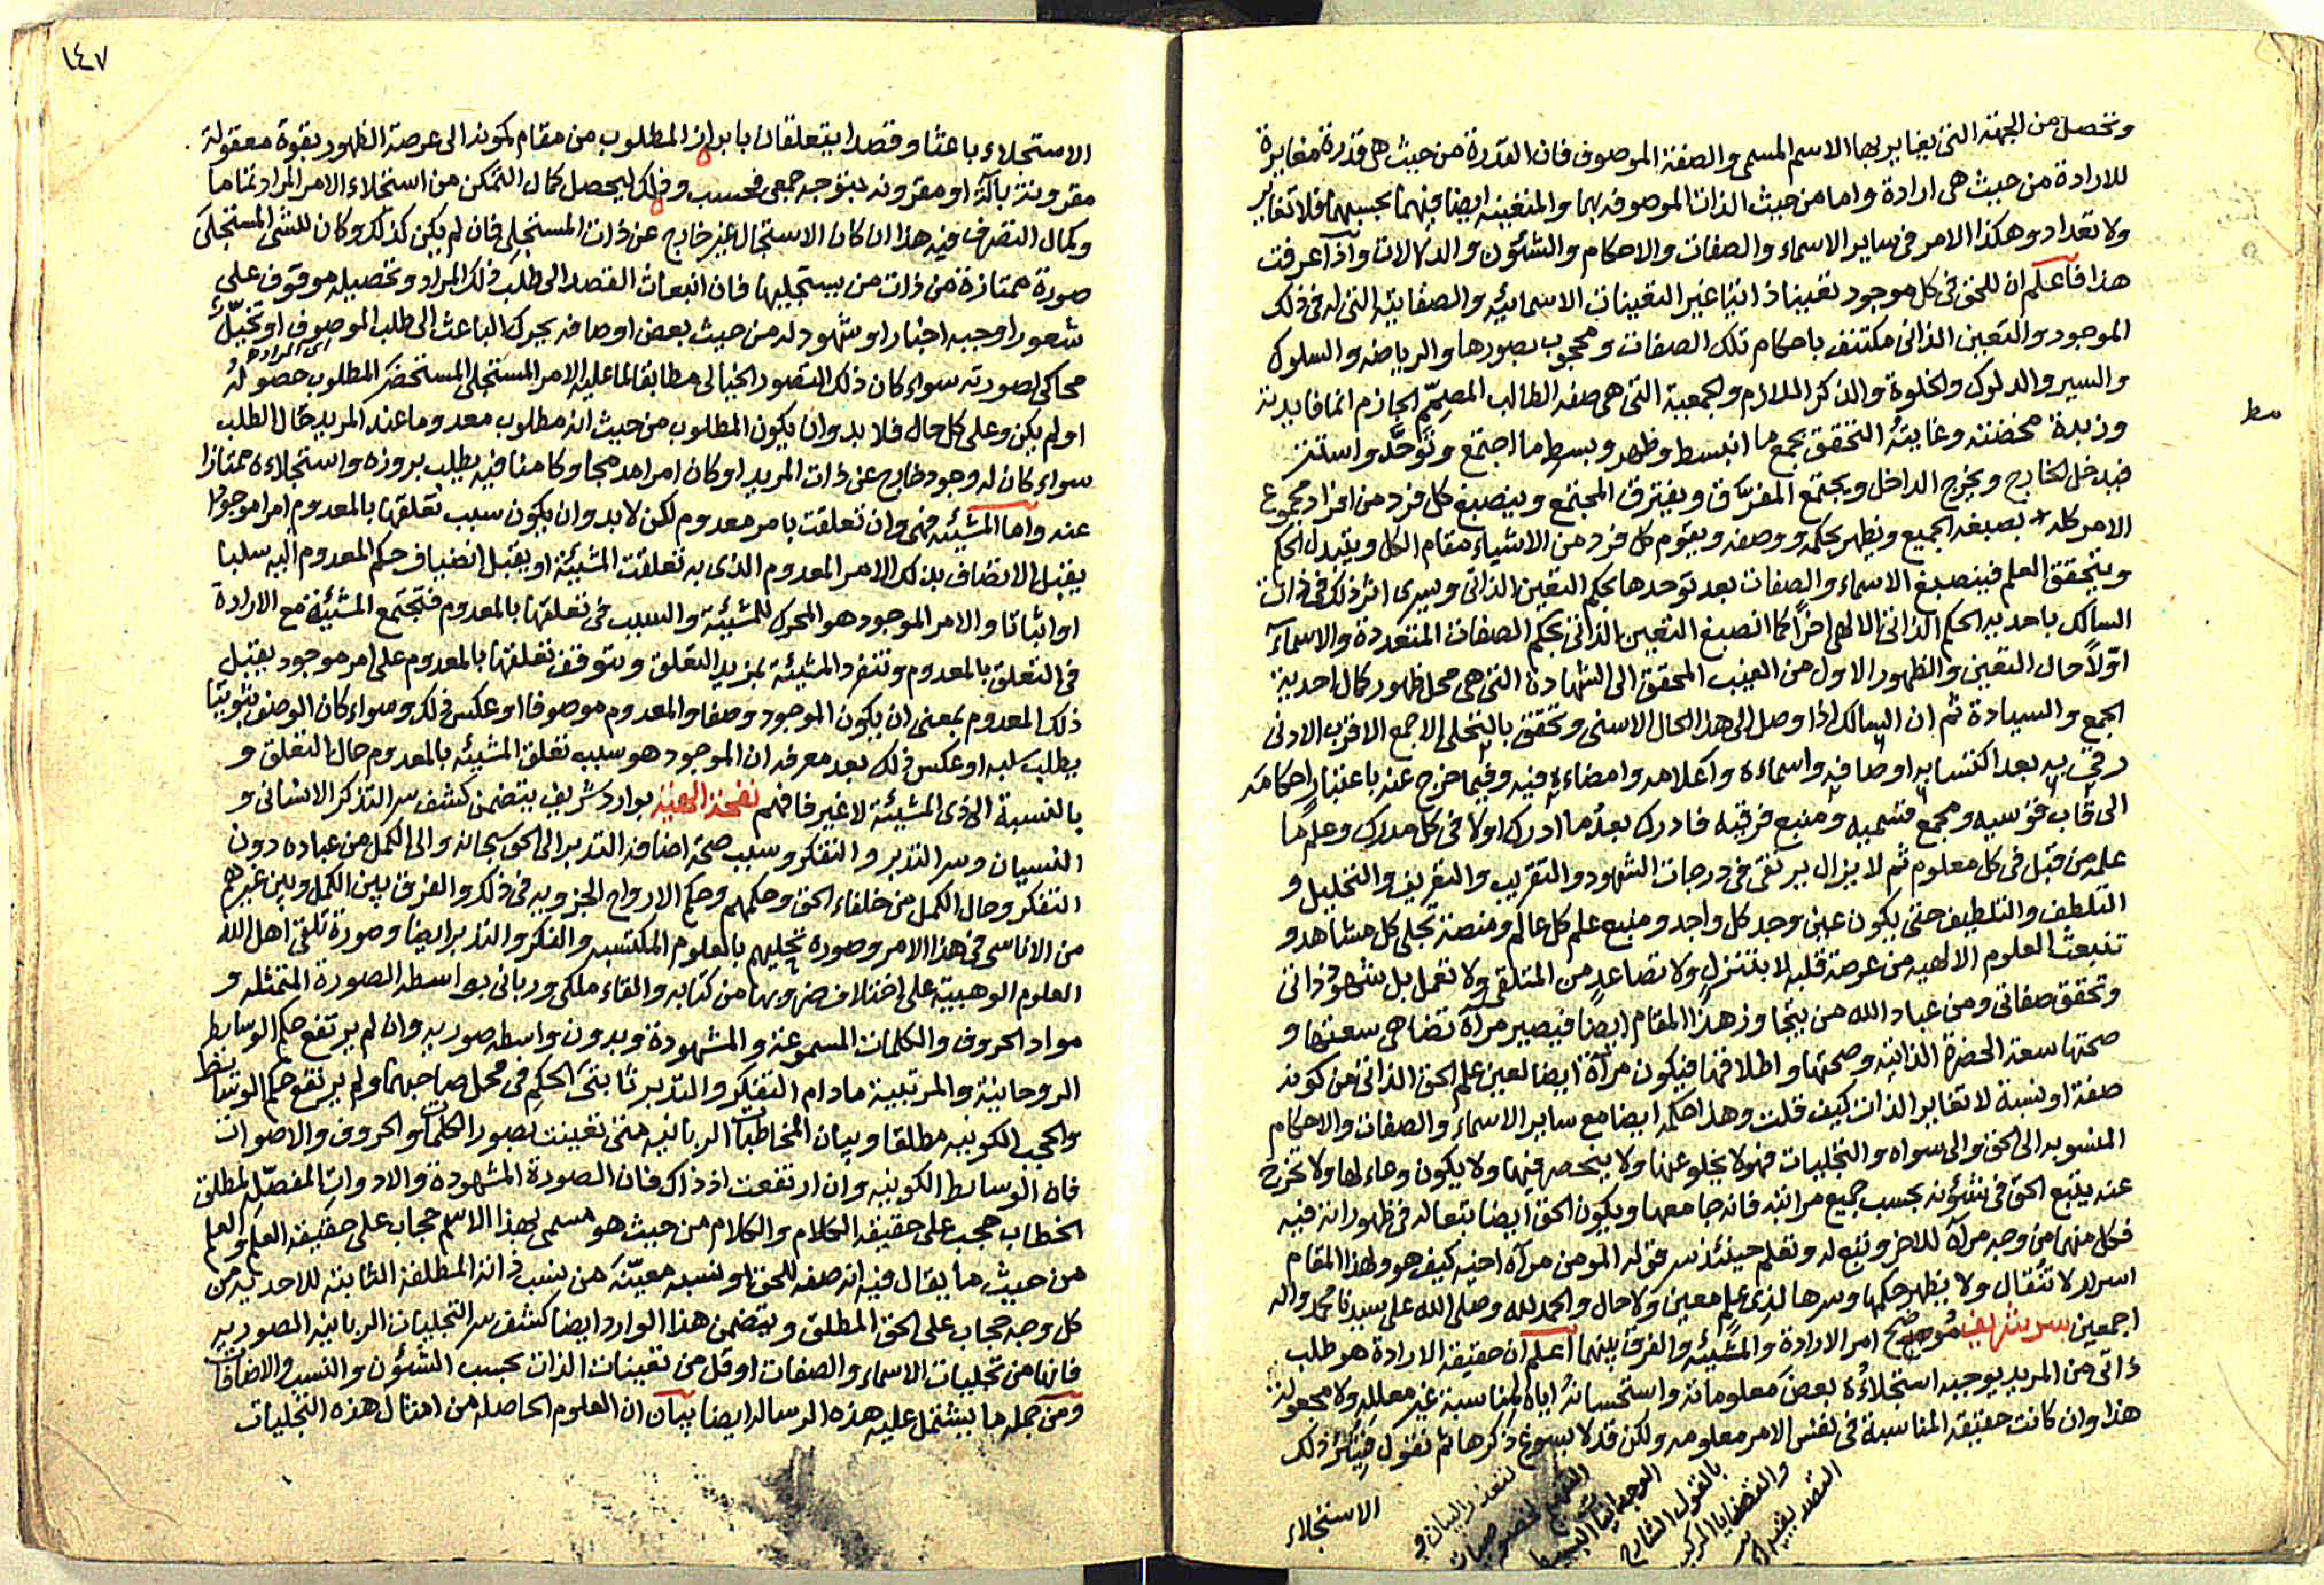 وتحصل من الجهة التي يغاير بها الاسم المسمى والصفة الموصوف فان القدرة من حيث هي قدرة مغايرة
للارادة من حيث هي ارادة واما من حيث الذات الموصوفه بهما والمتعينه ايضا فيهما بحسبهما فلا تغاير
ولا تعداد وهكذا الامر في ساير الاسماء والصفات والاحكام والشئون والدلالات واذا عرفت
هذا فاعلم ان للحق في كل موجود تعينا ذاتيا غير التعينات الاسمائيه والصفاتيه التي له في ذلك
الموجود والتعين الذاتي مكتنف باحكام تلك الصفات ومحجوب بصورها والرياضه والسلوك
والسير والدلوك والخلوة والذكر الملازم والجمعية التي هي صفه الطالب المصمّم الجازم انما فايدته
وزبدة مخضته وغايتهُ التحقق بجمع ما انبسط وظهر وبسط ما اجتمع وتوحّد واستتر
فيدخل الخارج ويخرج الداخل ويجتمع المفترق ويفترق المجتمع وينصبغ كل فرد من افراد مجموع
الامر كله بصبغه الجميع ويظهر بحكمه ووصفه ويقوم كل فرد من الاشياء مقام الكل ويتبدل الحكم
ويتحقق العلم فينصبغ الاسماء والصفات بعد توحدها بحكم التعين الذاتي ويسري اثر ذلك في ذات
السالك باحديه الحكم الذاتي الالهي اخراً كما انصبغ التعين الذاتي بحكم الصفات المتعددة والاسماء
اوّلاً حال التعين والظهور الاول من الغيب المحقق الى الشهادة التي هي محل ظهور كمال احدية
الجمع والسيادة ثم ان السالك اذا وصل الى هذا الحال الاسنى وتحقق بالتجلى الاجمع الاقرب الادنى
رقي به بعد اكتسابه اوصافه واسماءه واعلامه وامضاءه فيه وفيما خرج عنه باعتبار احكامه
الى قاب قوسيه ومجمع قسميه ومنبع فرقيه فادرك بعدُ ما ادرك اولا في كل مدرك وعلم ما
علمه من قبل في كل معلوم ثم لا يزال يرتقى في درجات الشهود والتقريب والتعريف والتحليل و
التلطف والتلطيف حتى يكون عين وجد كل واجد ومنبع علم كل عالم ومنصة تجلى كل مشاهد و
تنبعث العلوم الالهيه من عرصة قلبه لا بتنزلٍ ولا تصاعدٍ من المتلقي ولا تعمل بل شهود ذاتي
وتحقق صفاتي ومن عباد الله من يتجاوز هذا المقام ايضا فيصير مرآة تضاهي سعتها و
صحتها سعة الحضرة الذاتية وصحتها واطلاقها فيكون مرآة ايضا لعين علم الحق الذاتي من كونه
صفة او نسبة لا تغاير الذات كيف قلت وهذا حكمه ايضا مع ساير الاسماء والصفات والاحكام
المنسوبه الى الحق والى سواه والتجليات فهو لا يخلو عنها ولا ينحصر فيها ولا يكون وعاء لها ولا تخرج
عنه يتبع الحق في شئونه بحسب جميع مراتبه فانه جامعها ويكون الحق ايضا تبعا له في ظهوراته فيه
فكل منهما من وجه مرآة للاخر وتبع له وتعلم حينئذ سر قوله المومن مرآة اخيه كيف هو ولهذا المقام
اسرار لا تُقال ولا يظهر حكمها وسرها لذي علم معين ولا حال والحمد لله وصلى الله على سيدنا محمد واله
اجمعين سر شريف موضح امر الارادة والمشيئه والفرق بينهما اعلم ان حقيقة الارادة هو طلب
ذاتي من المريد يوجبه استجلاؤه بعض معلوماته واستحسانهُ اياه لمناسبة غير معلله ولا مجعولة
هذا وان كانت حقيقه المناسبة في نفس الامر معلومه ولكن قد لا يسوغ ذكرها ثم نقول فيكر ذلك
الاستجلاء
لتعذر البيان و
بالقول الشارح
مط
١٤٧
الاستجلاء باعثا وقصدا يتعلقان بابراز المطلوب من مقام كمونه الى عرصة الظهور بقوة معقولة
مقرونة بآلة او مقرونه بتوجه جمعي فحسب وذلك ليحصل كمال التمكن من استجلاء الامر المراد تماما
وكمال التصرف فيه هذا ان كان الاستجلاء غير خارج عن ذات المستجلى فان لم يكن كذلك وكان للشئ المستجلى
صورة ممتازة من ذات من يستجليها فان انبعاث القصد الى طلب ذلك المراد وتحصيله موقوف على
شعور اوجبه اخبار او شهود له من حيث بعض اوصافه يحرك الباعث الى طلب الموصوف او تخيّل
محاكي لصورته سواء كان ذلك التصور الخيالى مطابقا لما عليه الامر المستجلى المستحضر المطلوب حصوله
اولم يكن وعلى كل حال فلا بد وان يكون المطلوب من حيث انه مطلوب معدوما عند المريد حال الطلب
سواء كان له وجود خارج عن ذات المريد او كان امرا مدمجا وكامنا فيه يطلب بروزه واستجلاءه ممتازا
عنه واما المشيئه فهى وان تعلقت بامر معدوم لكن لا بد وان يكون سبب تعلقها بالمعدوم امرا موجودا
يقبل الانضاف بذلك الامر المعدوم الذي به تعلقت المشيئة او يقبل انضياف حكم المعدوم اليه سلبا
او اثباتا والامر الموجود هو المحرك للمشيئة والسبب في تعلقها بالمعدوم فتجتمع المشيئة مع الارادة
في التعلق بالمعدوم وتنفرد المشيئة بمزيد التعلق وبتوقف تعلقها بالمعدوم على امر موجود يقبل
ذلك المعدوم بمعنى ان يكون الموجود وصفا والمعدوم موصوفا او عكس ذلك وسواء كان الوصف ثبوتيا
يطلب سلبه او عكس ذلك بعد معرفه ان الموجود هو سبب تعلق المشيئه بالمعدوم حال التعلق و
بالنسبة الى ذي المشيئة لا غير فافهم نفحة الهية بوارد شريف يتضمن كشف سر التذكر الانسانى و
النسيان وسر التدبر والتفكر وسبب صحة اضافة التدبر الى الحق سبحانه والى الكمل من عباده دون
التفكر وحال الكمل من خلفاء الحق وحكمهم وحكم الارواح الجزويه في ذلك والفرق بين الكمل وبين غيرهم
من الاناسى في هذا الامر وصورة تحليهم بالعلوم المكتسبه والفكر والتدبر ايضا وصورة تلقى اهل الله
العلوم الوهبيه على اختلاف ضروبها من كتابه والقاء ملكى ورباني بواسطه الصورة المتمثله و
مواد الحروف والكلمات المسموعة والمشهودة وبدون واسطه صوريه وان لم يرتفع حكم الوسايط
الروحانية والمرتبية مادام التفكر والتدبر ثابتي الحكم في محل صاحبهما ولم يرتفع حكم الوسايط
والحجب الكونيه مطلقا وبيان المخاطبات الربانيه متى تعينت بصور الكلمات والحروف والاصوات
فان الوسايط الكونيه وان ارتفعت اذ ذاك فان الصورة المشهودة والادوات المفصّله لمطلق
الخطاب حجب على حقيقه الكلام والكلام من حيث هو مسمى بهذا الاسم حجاب على حقيقه العلم والعلم
من حيث ما يقال فيه انه صفه للحق او نسبه معيّنه من نسب ذاته المطلقة الثابتة للاحديه من
كل وجه حجاب على الحق المطلق ويتضمن هذا الوارد ايضا كشف سر التجليات الربانيه الصوريه
فانها من تجليات الاسماء والصفات او قل من تعينات الذات بحسب الشئون والنسب والاضافات
ومن جمله ما يشتمل عليه هذه الرساله ايضا بيان ان العلوم الحاصله من امثال هذه التجليات